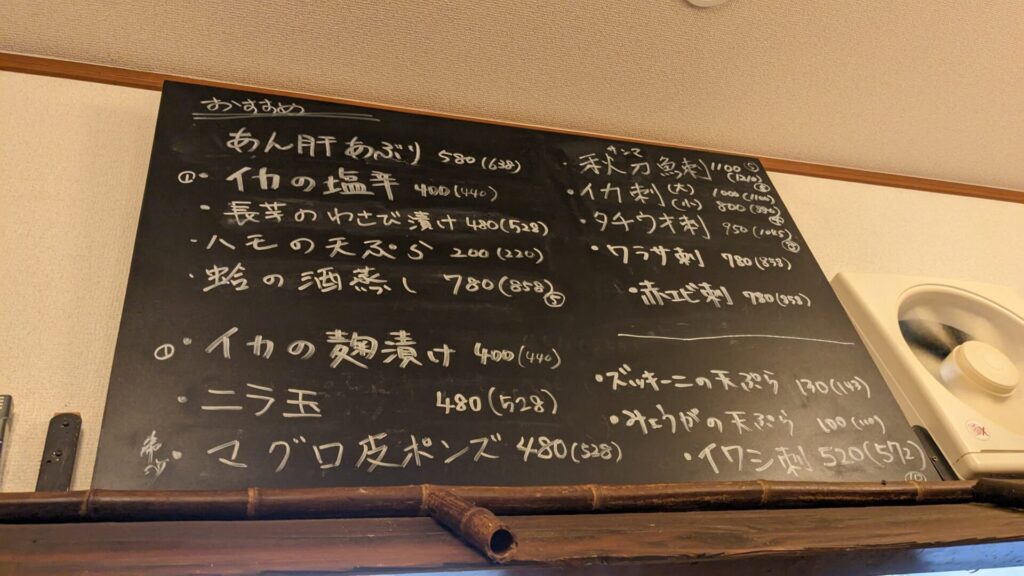 おすすめ
あん肝あぶり 580(638)
①・イカの塩辛 400(440)
・長芋のわさび漬け 480(528)
・ハモの天ぷら 200(220)
・蛤の酒蒸し 780(858)
⑤
①・イカの麹漬け 400(440)
・ニラ玉 480(528)
・マグロ皮ポンズ 480(528)
サンマ
・秋刀魚刺 1100
(1210)
・イカ刺(大) 1000(1100)
(小) 800(880)
・タチウオ刺 950(1045)
・ワラサ刺 780(858)
・赤エビ刺 780(858)
・ズッキーニの天ぷら 130(143)
・みょうがの天ぷら 100(110)
・イワシ刺 520(572)
⑩